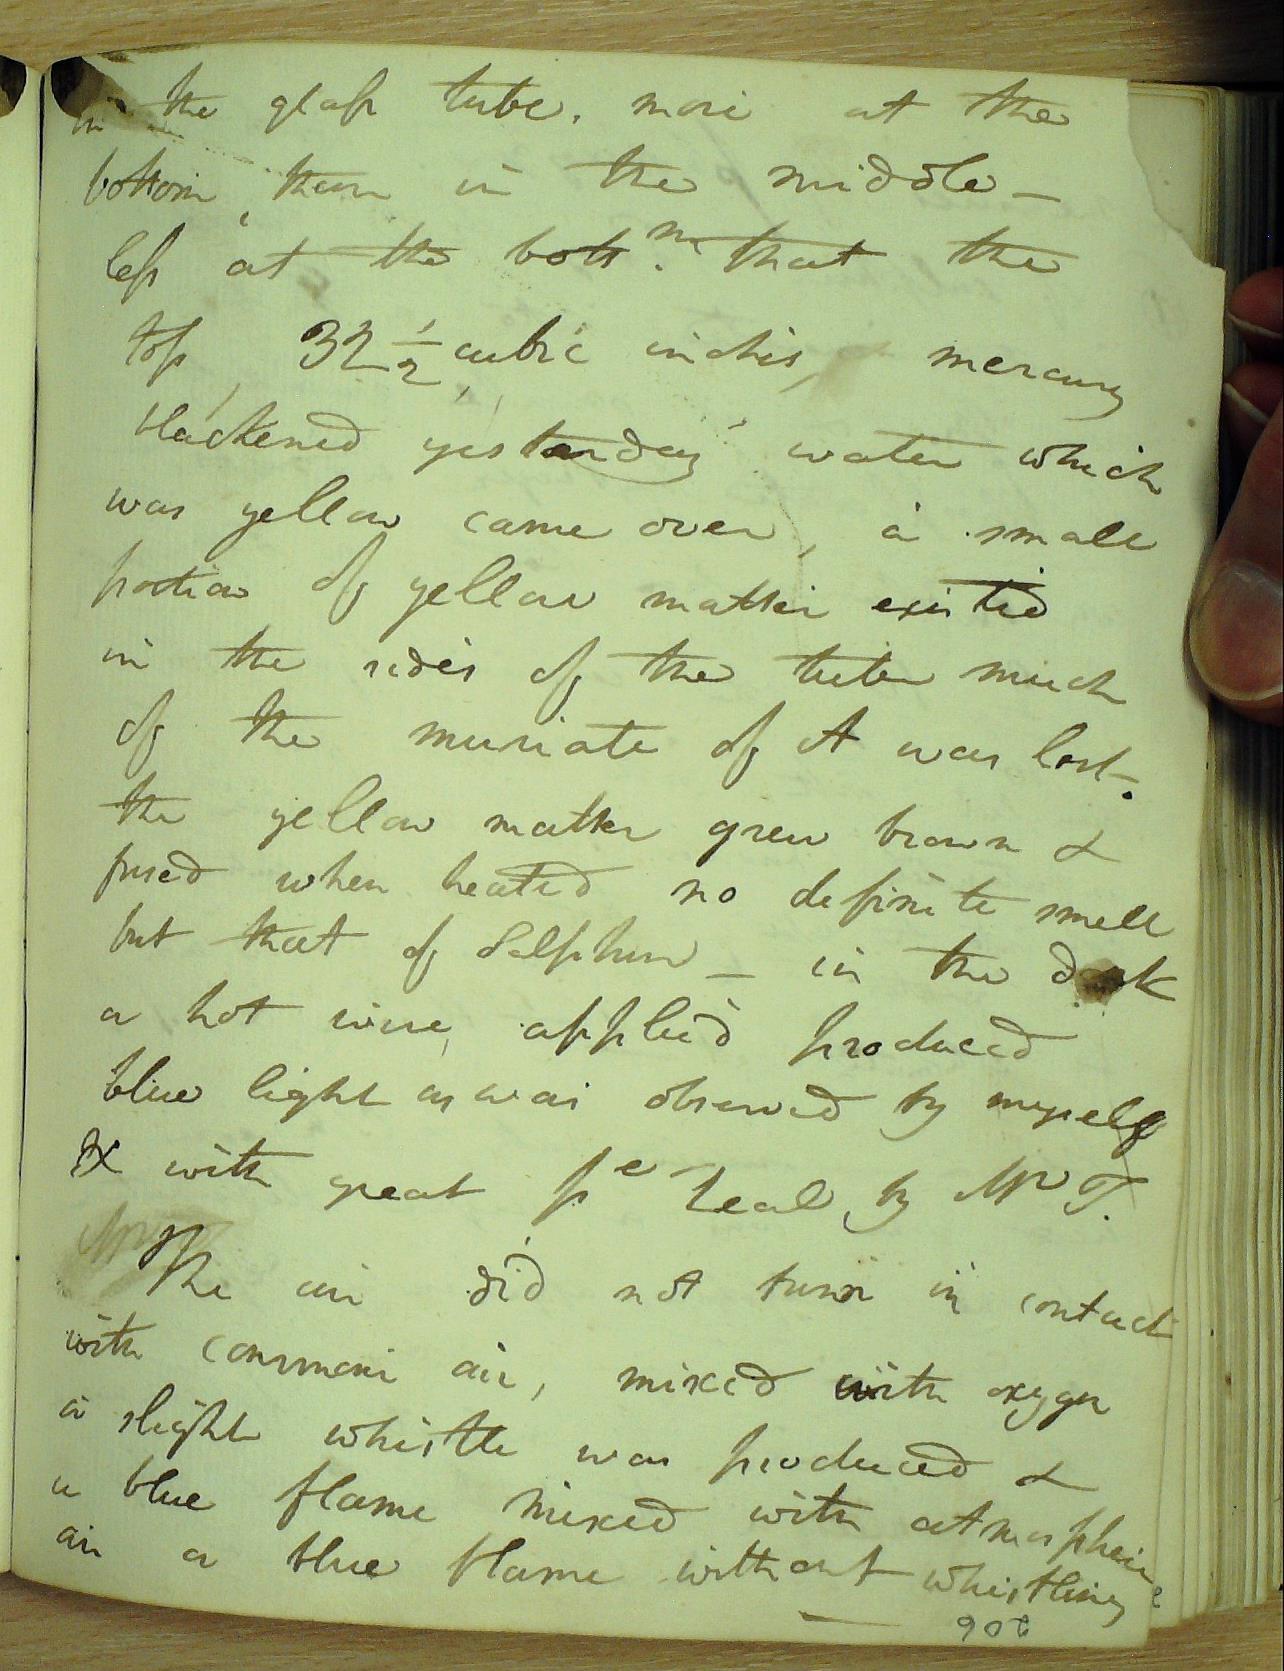 in the glass tube. more at the
bottom, than in the middle —
less at the bottm. that the
top 32 1/2 cubic inches, mercury
blackened yesterday water which
was yellow came over, a small
portion of yellow matter existed
in the sides of the tube much
of the muriate of A was lost.
the yellow matter grew brown &
fused when heated no definite smell
but that of Sulphur — in the dark
a hot wire, applied produced
blue light as was observed by myself
& with great pe Zeal by Mr T.
The air did not turn in contact
with common air, mixed with oxygen
a slight whistle was produced &
a blue flame mixed with atmospheric
air a blue flame without whistling